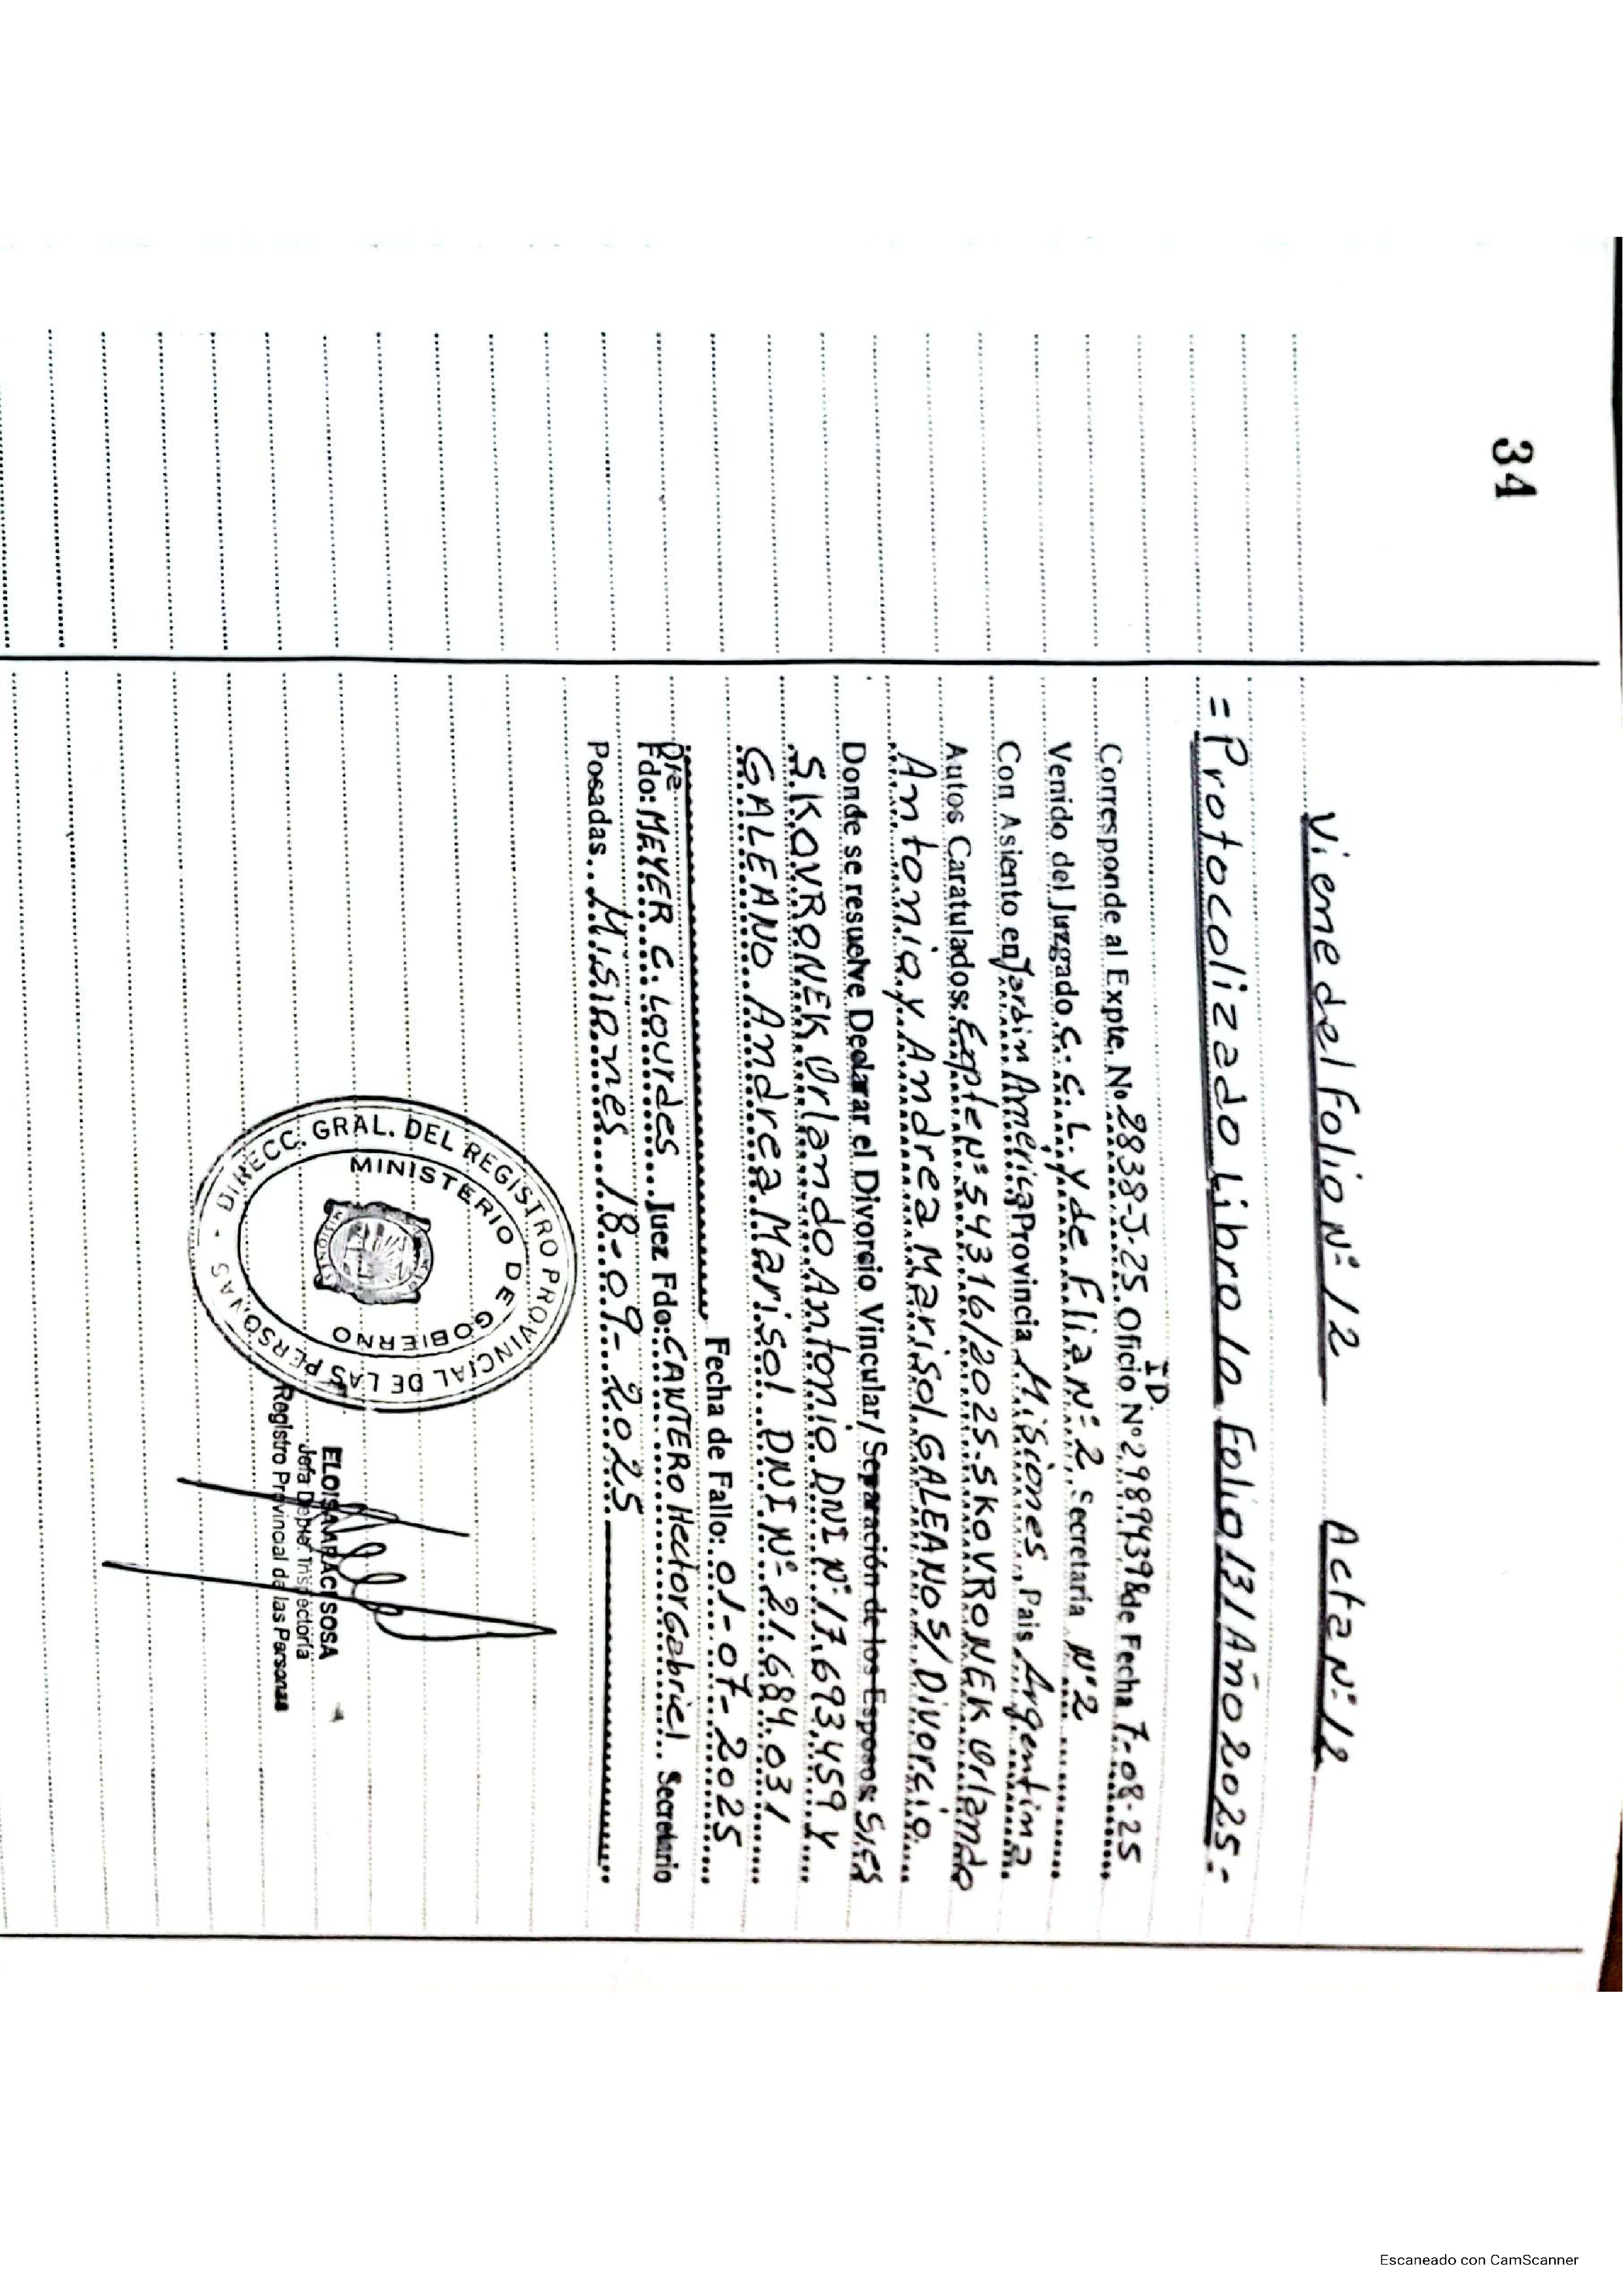 34
Viene del Folio Nº 12 Acta Nº 12
= Protocolizado Libro 1a Folio 131 Año 2025.-
Corresponde al Expte. Nº 2838-J-25 Oficio ID Nº 29894398 de Fecha 7-08-25
Venido del Juzgado C.C.L. y de Flia Nº 2 Secretaría Nº 2
Con Asiento en Jardin América Provincia Misiones Pais Argentina
Autos Caratulados: Expte Nº 54316/2025 SKOVRONEK Orlando
Antonio y Andrea Marisol GALEANO S/ Divorcio
Donde se resuelve Declarar el Divorcio Vincular / Separación de los Esposos: Sres
SKOVRONEK Orlando Antonio DNI Nº 17.693.459 y
GALEANO Andrea Marisol DNI Nº 21.684.031
Fecha de Fallo: 01-07-2025
Fdo: Dra MEYER C. Lourdes Juez Fdo: CANTERO Hector Gabriel Secretario
Posadas Misiones 18-09-2025
DIRECC. GRAL. DEL REGISTRO PROVINCIAL DE LAS PERSONAS -
MINISTERIO DE GOBIERNO
ELOISA ARACI SOSA
Jefa Depto. Inspectoría
Registro Provincial de las Personas
Escaneado con CamScanner